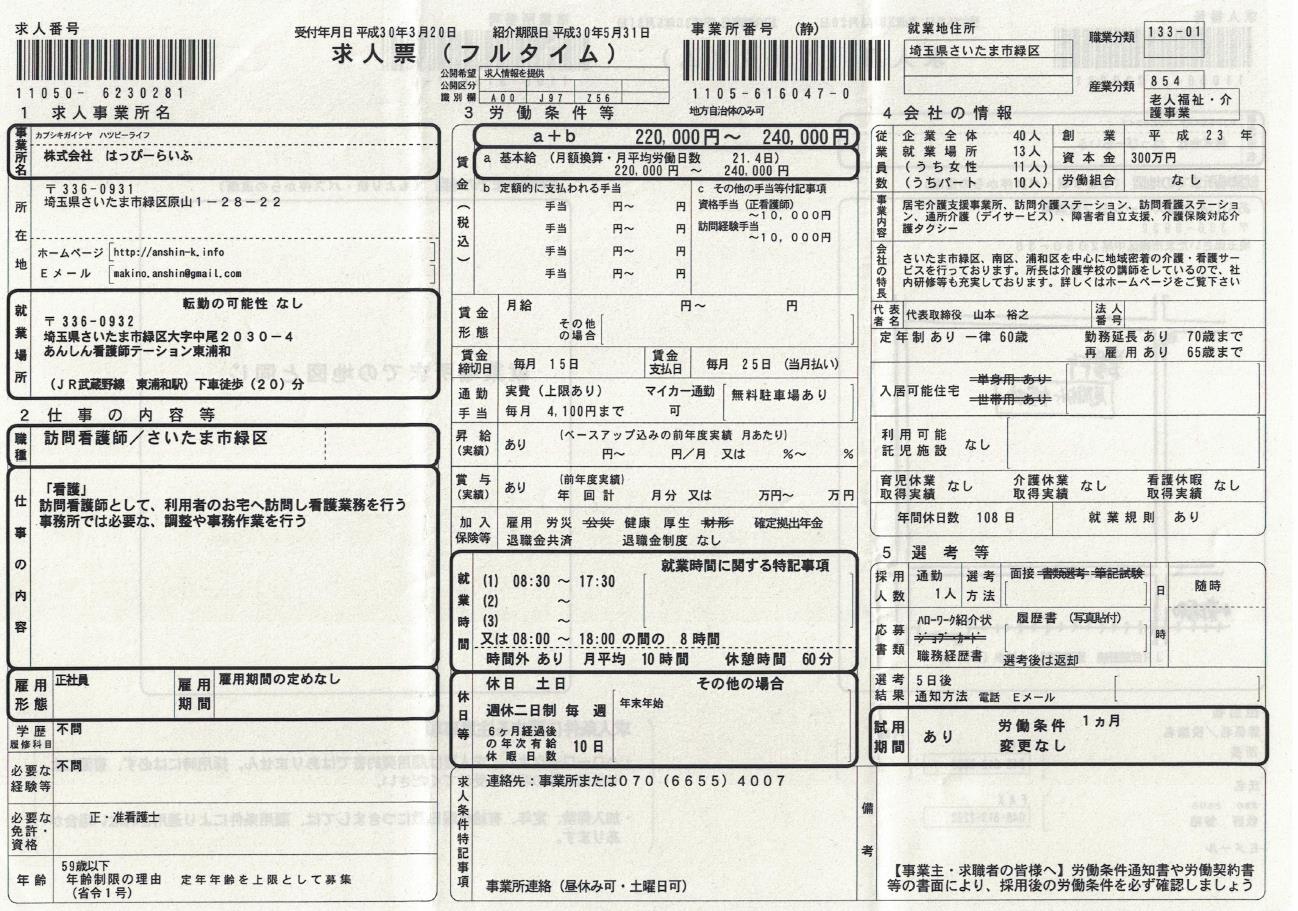 求人番号
11050- 6230281
受付年月日 平成30年3月20日 紹介期限日 平成30年5月31日
求人票（フルタイム）
公開希望 求人情報を提供
公開区分
識別欄 A00 J97 Z56
事業所番号 （静）
1105-616047-0
地方自治体のみ可
就業地住所
埼玉県さいたま市緑区
職業分類 133-01
産業分類 854
老人福祉・介護事業
1 求人事業所名
事業所名
カブシキガイシヤ ハツピーライフ
株式会社 はっぴーらいふ
所在地
〒336-0931
埼玉県さいたま市緑区原山１－２８－２２
ホームページ http://anshin-k.info
Ｅメール makino.anshin@gmail.com
就業場所
転勤の可能性 なし
〒336-0932
埼玉県さいたま市緑区大字中尾２０３０－４
あんしん看護師テーション東浦和
（ＪＲ武蔵野線 東浦和駅）下車徒歩（20）分
2 仕事の内容等
職種
訪問看護師／さいたま市緑区
仕事の内容
「看護」
訪問看護師として、利用者のお宅へ訪問し看護業務を行う
事務所では必要な、調整や事務作業を行う
雇用形態 正社員
雇用期間 雇用期間の定めなし
学歴 不問
履修科目
必要な経験等 不問
必要な免許・資格 正・准看護士
年齢
59歳以下
年齢制限の理由 定年年齢を上限として募集
（省令１号）
3 労働条件等
賃金（税込）
a+b 220,000円～ 240,000円
a 基本給 （月額換算・月平均労働日数 21.4日）
220,000円 ～ 240,000円
b 定額的に支払われる手当
手当 円～ 円
手当 円～ 円
手当 円～ 円
手当 円～ 円
c その他の手当等付記事項
資格手当（正看護師）
～10,000円
訪問経験手当
～10,000円
賃金形態
月給 円～ 円
その他の場合
賃金締切日 毎月 15日
賃金支払日 毎月 25日（当月払い）
通勤手当
実費（上限あり）
毎月 4,100円まで
マイカー通勤 可
無料駐車場あり
昇給（実績）
あり （ベースアップ込みの前年度実績 月あたり）
円～ 円／月 又は %～ %
賞与（実績）
あり （前年度実績）
年 回 計 月分 又は 万円～ 万円
加入保険等
雇用 労災 公災 健康 厚生 財形 確定拠出年金
退職金共済 退職金制度 なし
就業時間
就業時間に関する特記事項
(1) 08:30 ～ 17:30
(2) ～
(3) ～
又は 08:00 ～ 18:00 の間の 8時間
時間外 あり 月平均 10時間 休憩時間 60分
休日等
休日 土日 その他の場合
週休二日制 毎 週 年末年始
６ヶ月経過後の年次有給休暇日数 10日
求人条件特記事項
連絡先：事業所または０７０（６６５５）４００７
事業所連絡（昼休み可・土曜日可）
4 会社の情報
従業員数
企業全体 40人
就業場所 13人
（うち女性 11人）
（うちパート 10人）
創業 平成23年
資本金 300万円
労働組合 なし
事業内容
居宅介護支援事業所、訪問介護ステーション、訪問看護ステーション、通所介護（デイサービス）、障害者自立支援、介護保険対応介護タクシー
会社の特長
さいたま市緑区、南区、浦和区を中心に地域密着の介護・看護サービスを行っております。所長は介護学校の講師をしているので、社内研修等も充実しております。詳しくはホームページをご覧下さい
代表者名 代表取締役 山本 裕之
法人番号
定年制 あり 一律 60歳 勤務延長 あり 70歳まで
再雇用 あり 65歳まで
入居可能住宅
単身用 あり
世帯用 あり
利用可能託児施設 なし
育児休業取得実績 なし
介護休業取得実績 なし
看護休暇取得実績 なし
年間休日数 108日 就業規則 あり
5 選考等
採用人数 通勤 1人
選考方法 面接 書類選考 筆記試験
日時 随時
応募書類
ハローワーク紹介状 履歴書（写真貼付）
ジョブ・カード
職務経歴書 選考後は返却
選考結果
５日後
通知方法 電話 Ｅメール
試用期間
あり 労働条件 変更なし １ヵ月
備考
【事業主・求職者の皆様へ】労働条件通知書や労働契約書
等の書面により、採用後の労働条件を必ず確認しましょう